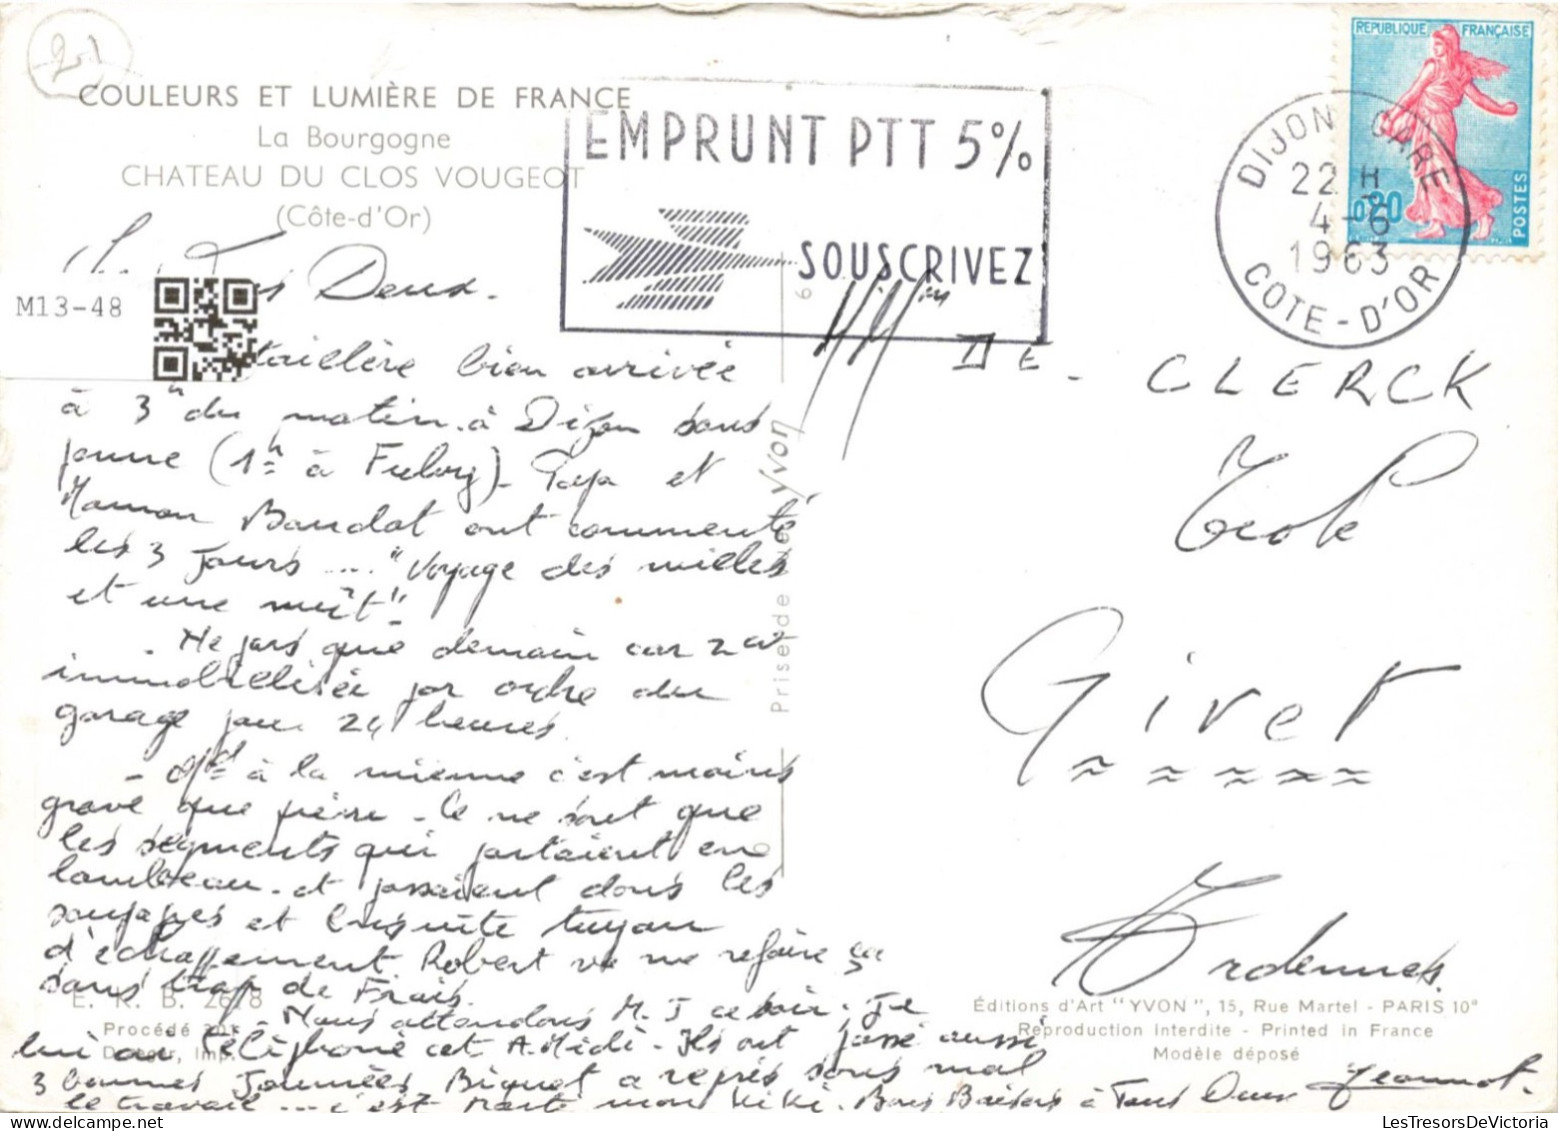 21
COULEURS ET LUMIÈRE DE FRANCE
La Bourgogne
CHATEAU DU CLOS VOUGEOT
(Côte-d'Or)
EMPRUNT PTT 5%
SOUSCRIVEZ
REPUBLIQUE FRANÇAISE
0,20
POSTES
DIJON GARE
22 H
4-6
1963
COTE-D'OR
M13-48
Deux.
bien arrivée
à 3h du matin à Dijon sans
panne (1h à ). Papa et
Maman Baudot ont commenté
les 3 jours .... "Voyage des milles
et une nuit"
- Ne pars que demain car 2cv
immobilisée par ordre du
garage pour 24 heures.
- à la mienne c'est moins
grave que . Ce ne sont que
les segments qui partaient en
lambeau et passaient dans les
soupapes et ensuite tuyau
d'échappement. Robert va me refaire ça
sans trop de Frais.
- Nous attendons M. J ce soir. J'ai
lui au Téléphone cet A. Midi. Ils ont passé aussi
3 bonnes Journées. Biquet a repris sans mal
le travail ... c'est mon Kiki. Bons Baisers à Tous Deux Jeannot.
E. K. B. 2678
Procédé
Imp.
Prise de Yvon
DE CLERCK
Ecole
Givet
Ardennes.
Éditions d'Art "YVON", 15, Rue Martel - PARIS 10e
Reproduction interdite - Printed in France
Modèle déposé
LesTresorsDeVictoria.com